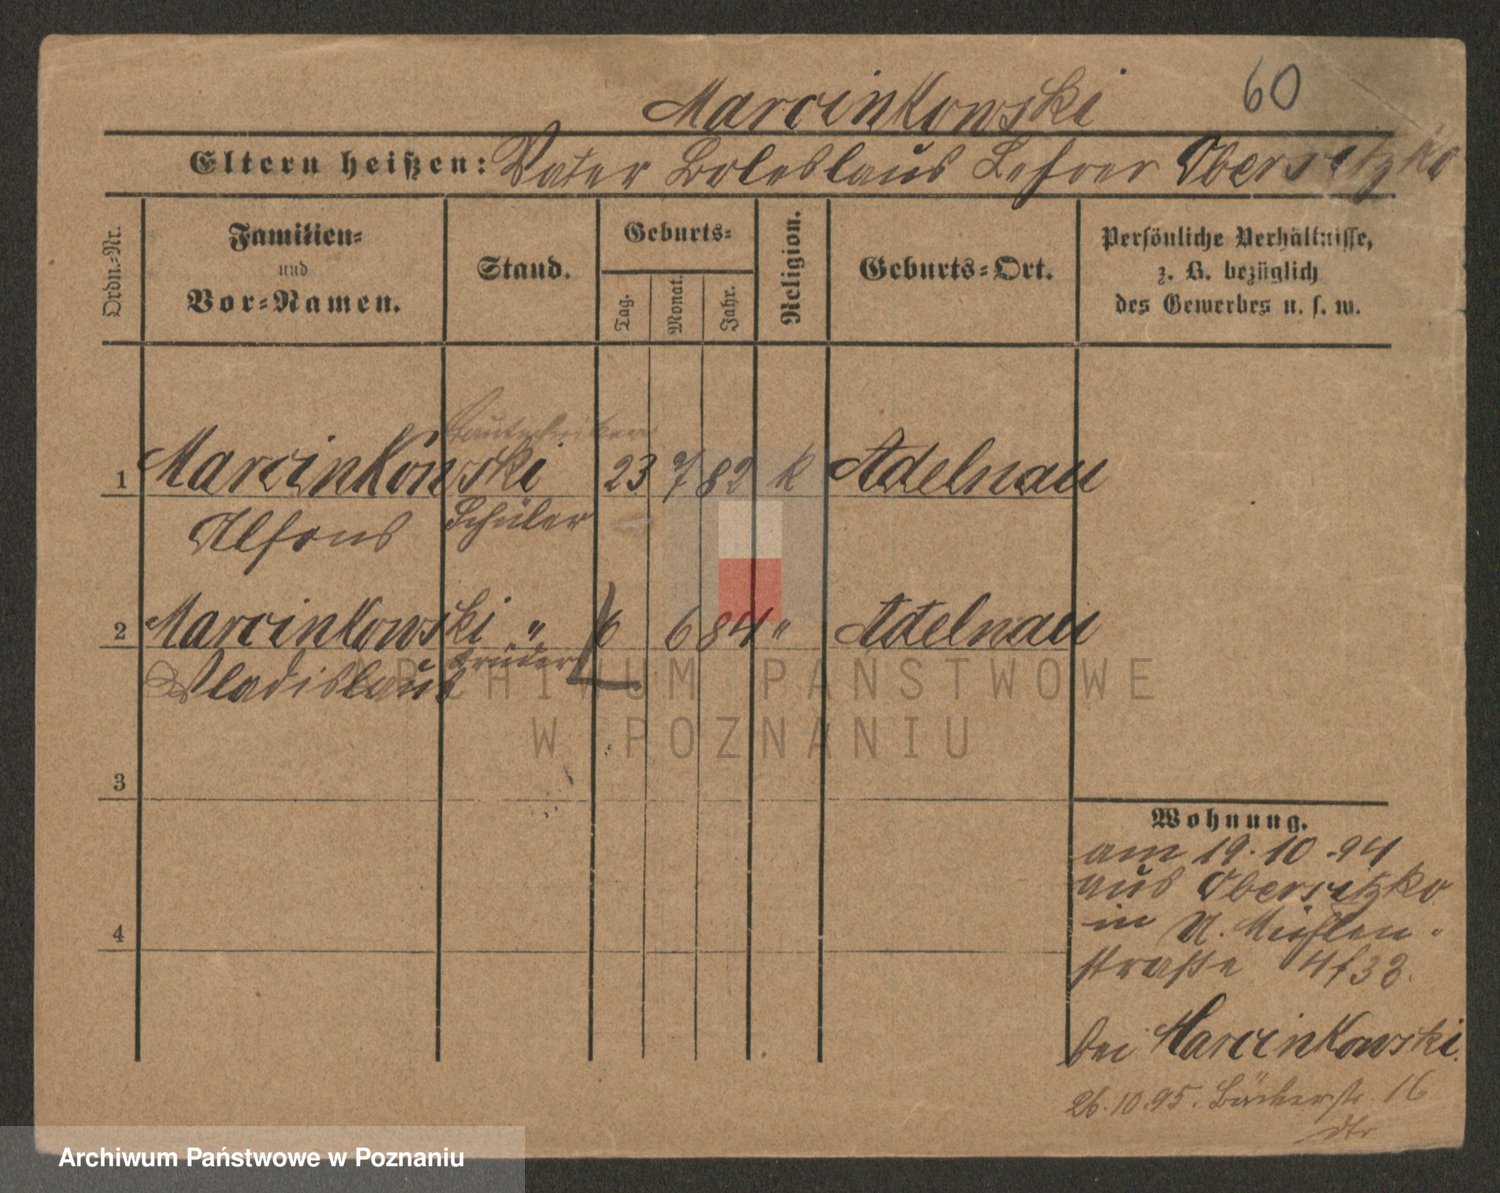 60
Marcinkowski
Eltern heißen: Vater Boleslaus Lehrer Obersitzko
Ordn.-Nr.
Familien-
und
Vor-Namen.
Stand.
Geburts-
Tag.
Monat.
Jahr.
Religion.
Geburts-Ort.
Persönliche Verhältnisse,
z. B. bezüglich
des Gewerbes u. s. w.
1 Marcinkowski 23 7 82 k Adelnau
Alfons Schüler
2 Marcinkowski " 6 6 84 " Adelnau
Wladislaus Brüder
3
4
Wohnung.
am 19.10.94
aus Obersitzko
in U. Mühlen-
straße 4f38.
bei Marcinkowski.
26.10.95. Bäckerstr 16
ARCHIWUM PAŃSTWOWE
W POZNANIU
Archiwum Państwowe w Poznaniu